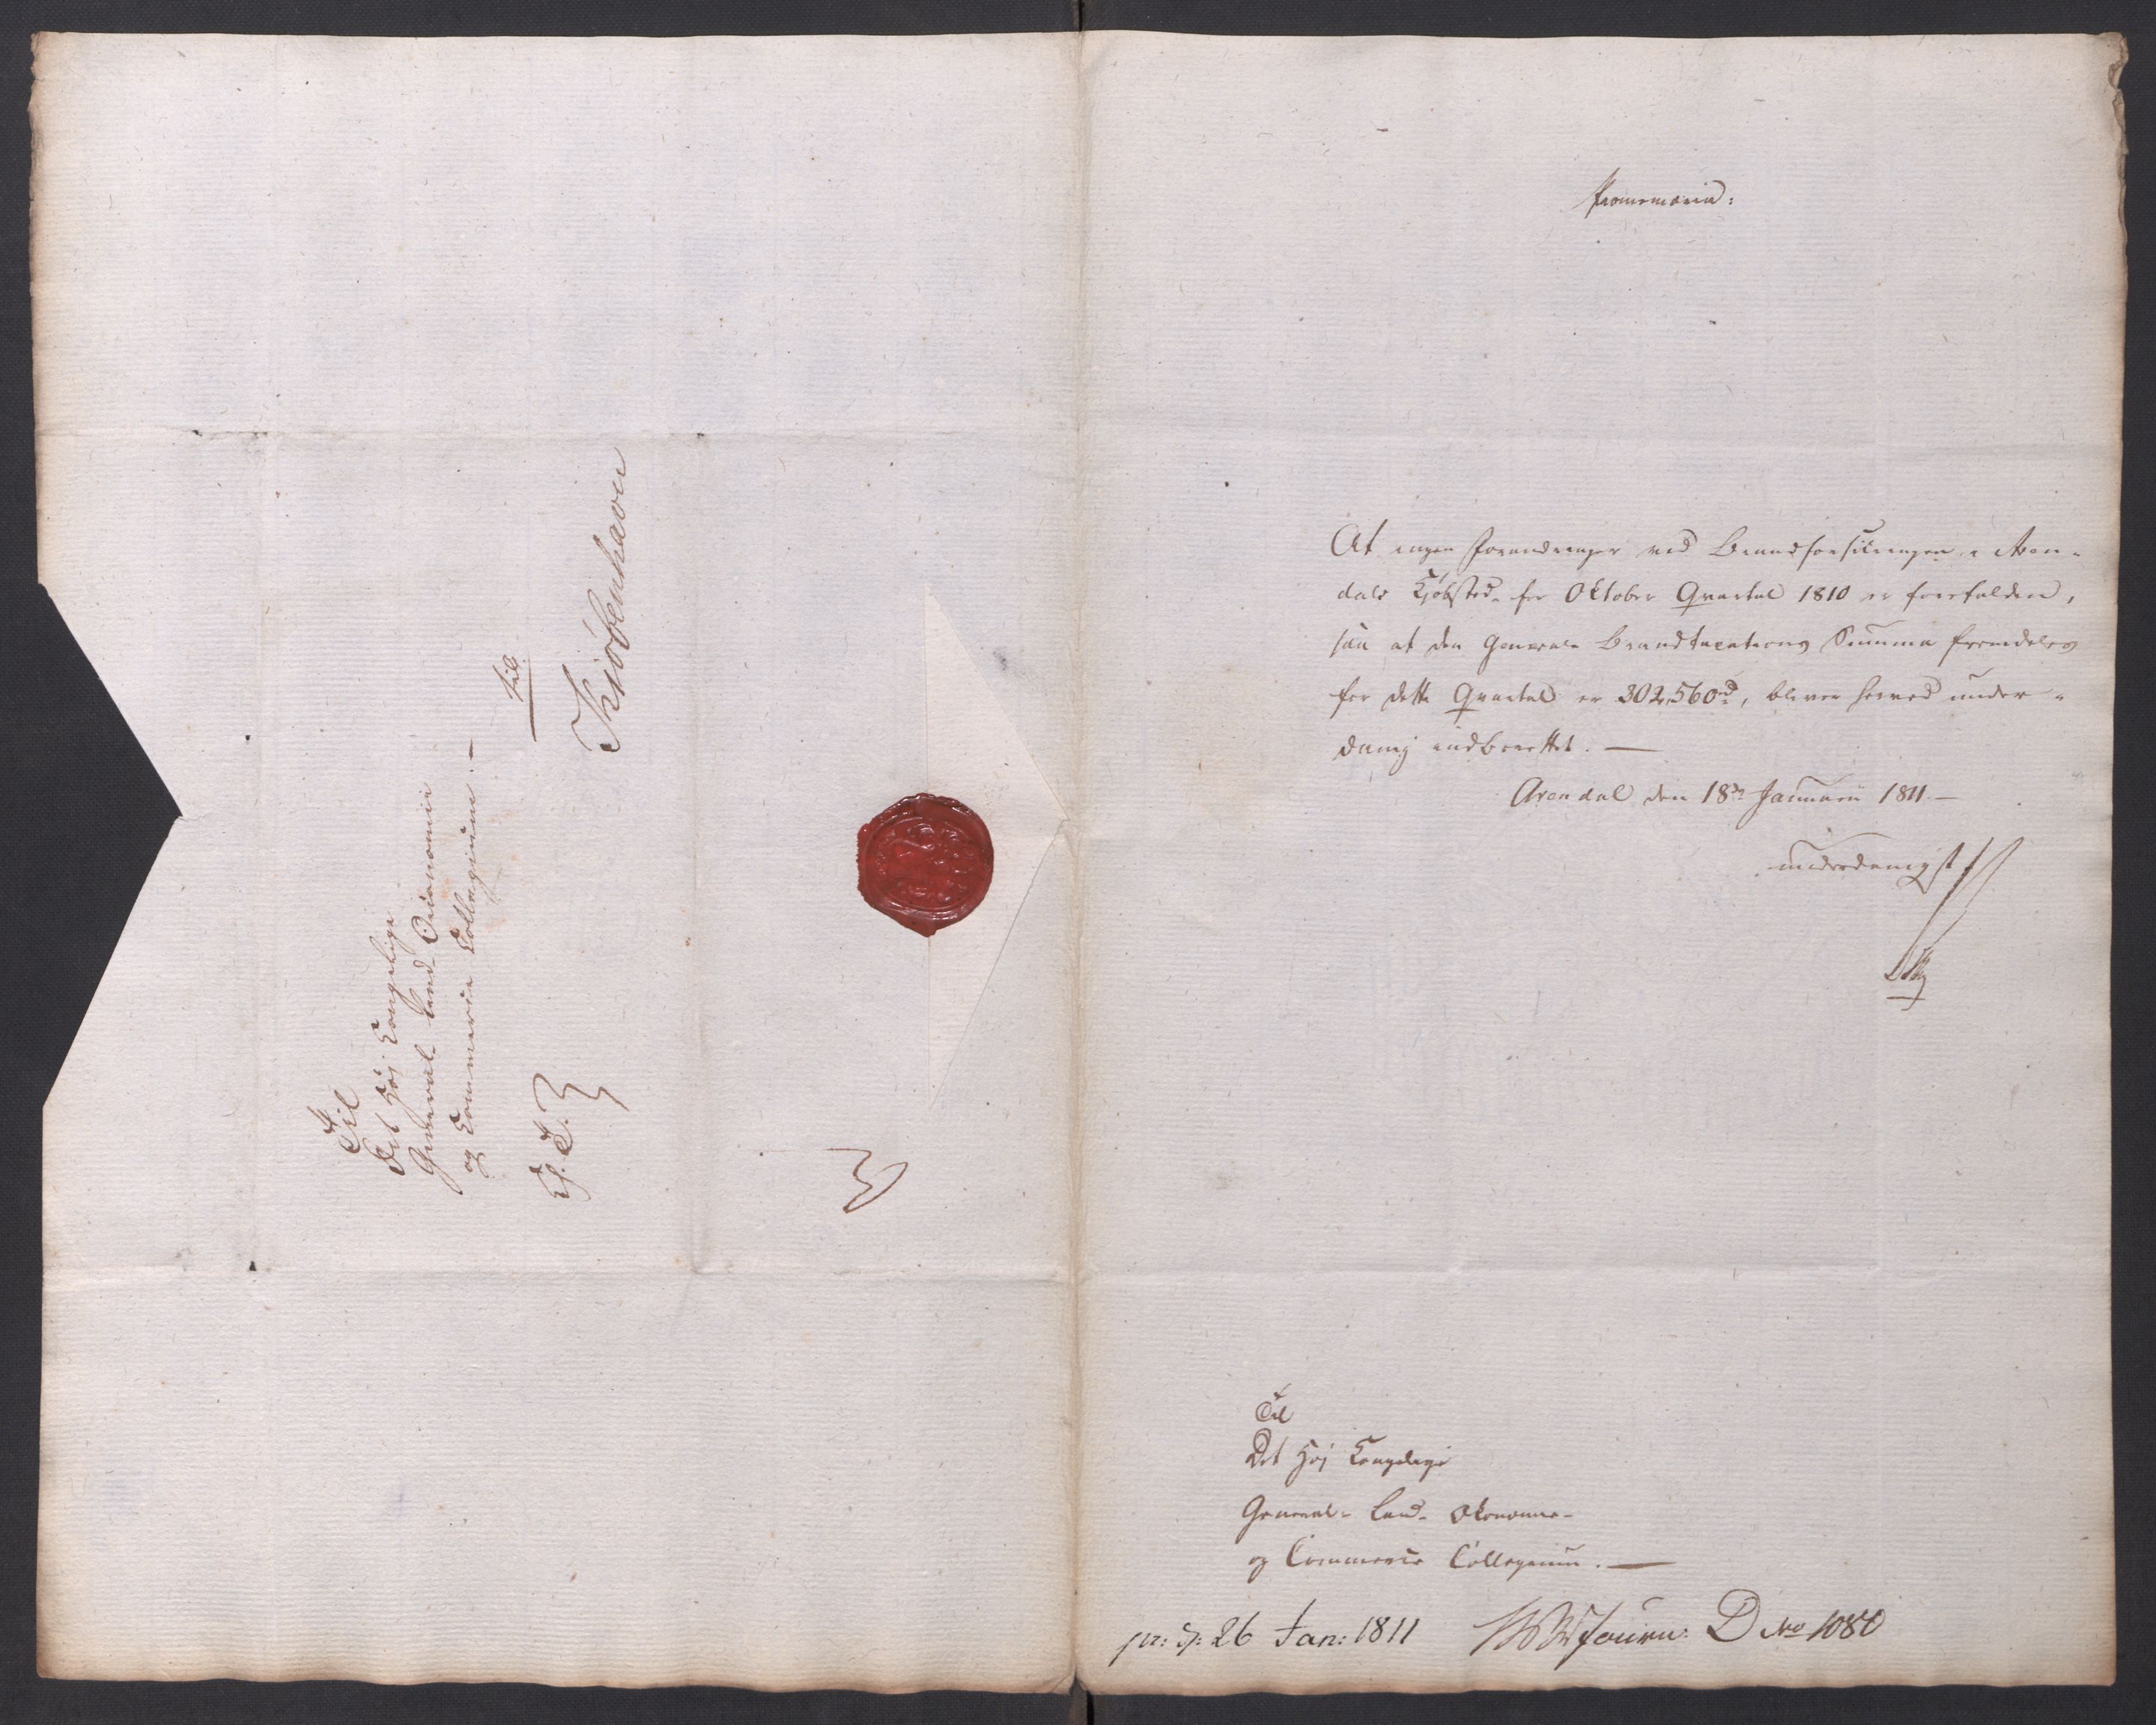 Til
Det Høi Kongelige
General Land-Oeconomie
og Commercie Collegium. —
frb.
K. T.
Kjøbenhavn
Promemoria:
At ingen Forandringer ved Brandforsikringen i Aren-
dals Kjøbsted for Oktober Qvartal 1810 er forefalden,
saa at den Generale Brandtaxations Summa fremdeles
for dette Qvartal er 302,560rd, bliver herved under-
danig indberettet. —
Arendal den 18de Januarii 1811. —
underdanigst
Til
Det Høj Kongelige
General- Land- Økonomie-
og Commercie Collegium. —
pr: d: 26 Jan: 1811
Journ: D No 1080